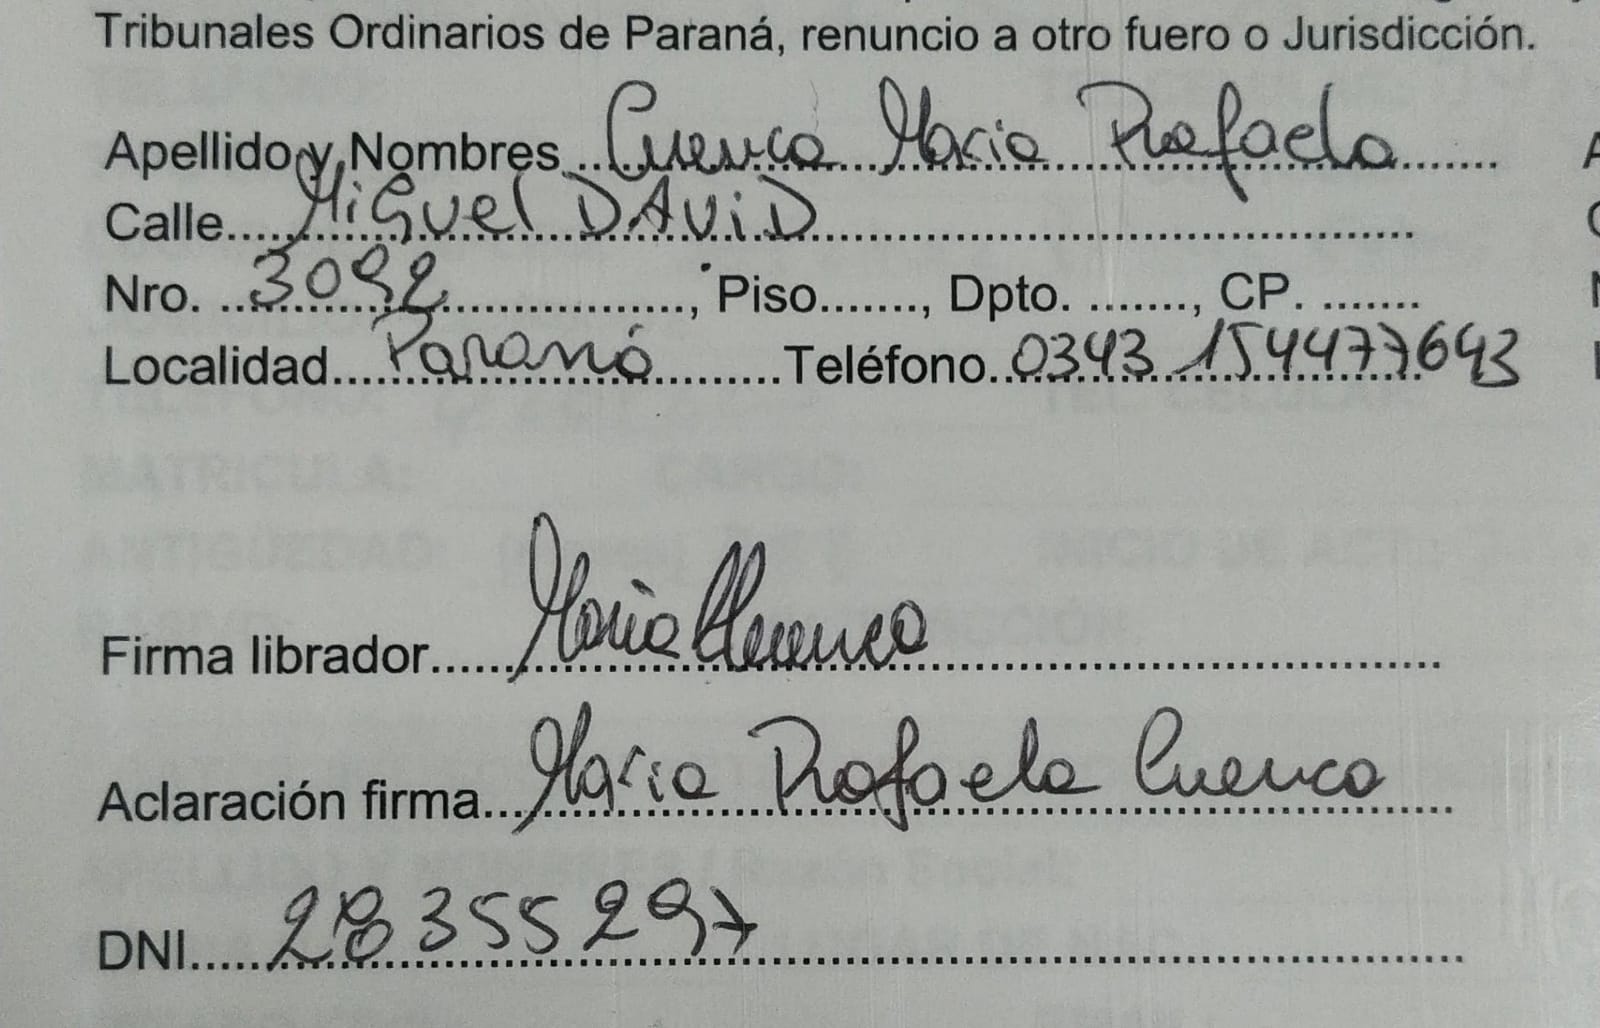 Tribunales Ordinarios de Paraná, renuncio a otro fuero o Jurisdicción.
Apellido y Nombres...Cuenca Maria Rafaela........
Calle.....Miguel DAViD..............................
Nro. ..3092................., Piso......., Dpto. ........, CP. ........
Localidad....Paraná..........Teléfono..0343 154477643
Firma librador......Maria Cuenca..............................
Aclaración firma...Maria Rafaela Cuenca.....
DNI.....28355297..............................